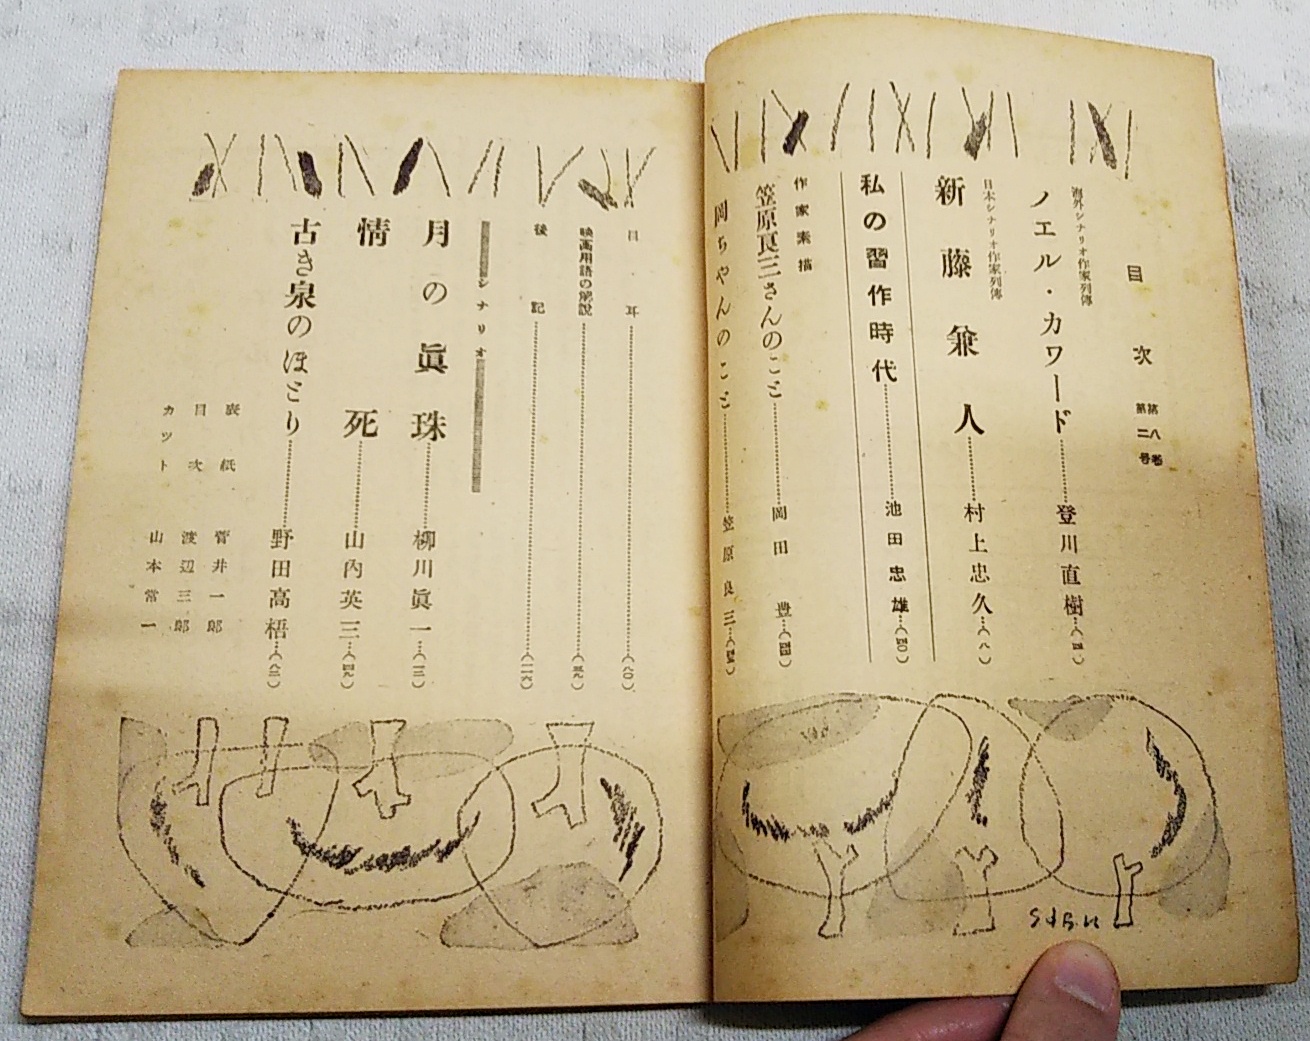 目次
第八巻
第二号
海外シナリオ作家列傳
ノエル・カワード……登川直樹…
日本シナリオ作家列傳
新藤兼人……村上忠久…(八)
私の習作時代……池田忠雄…(四〇)
作家素描
笠原良三さんのこと……岡田豊…(四四)
岡ちゃんのこと……笠原良三…(四五)
耳目……(八〇)
映画用語の解説……(三九)
後記……(一一六)
シナリオ
月の眞珠……柳川眞一…(一三)
情死……山内英三…(四九)
古き泉のほとり……野田高梧…(八二)
表紙 菅井一郎
目次 渡辺三郎
カット 山本常一